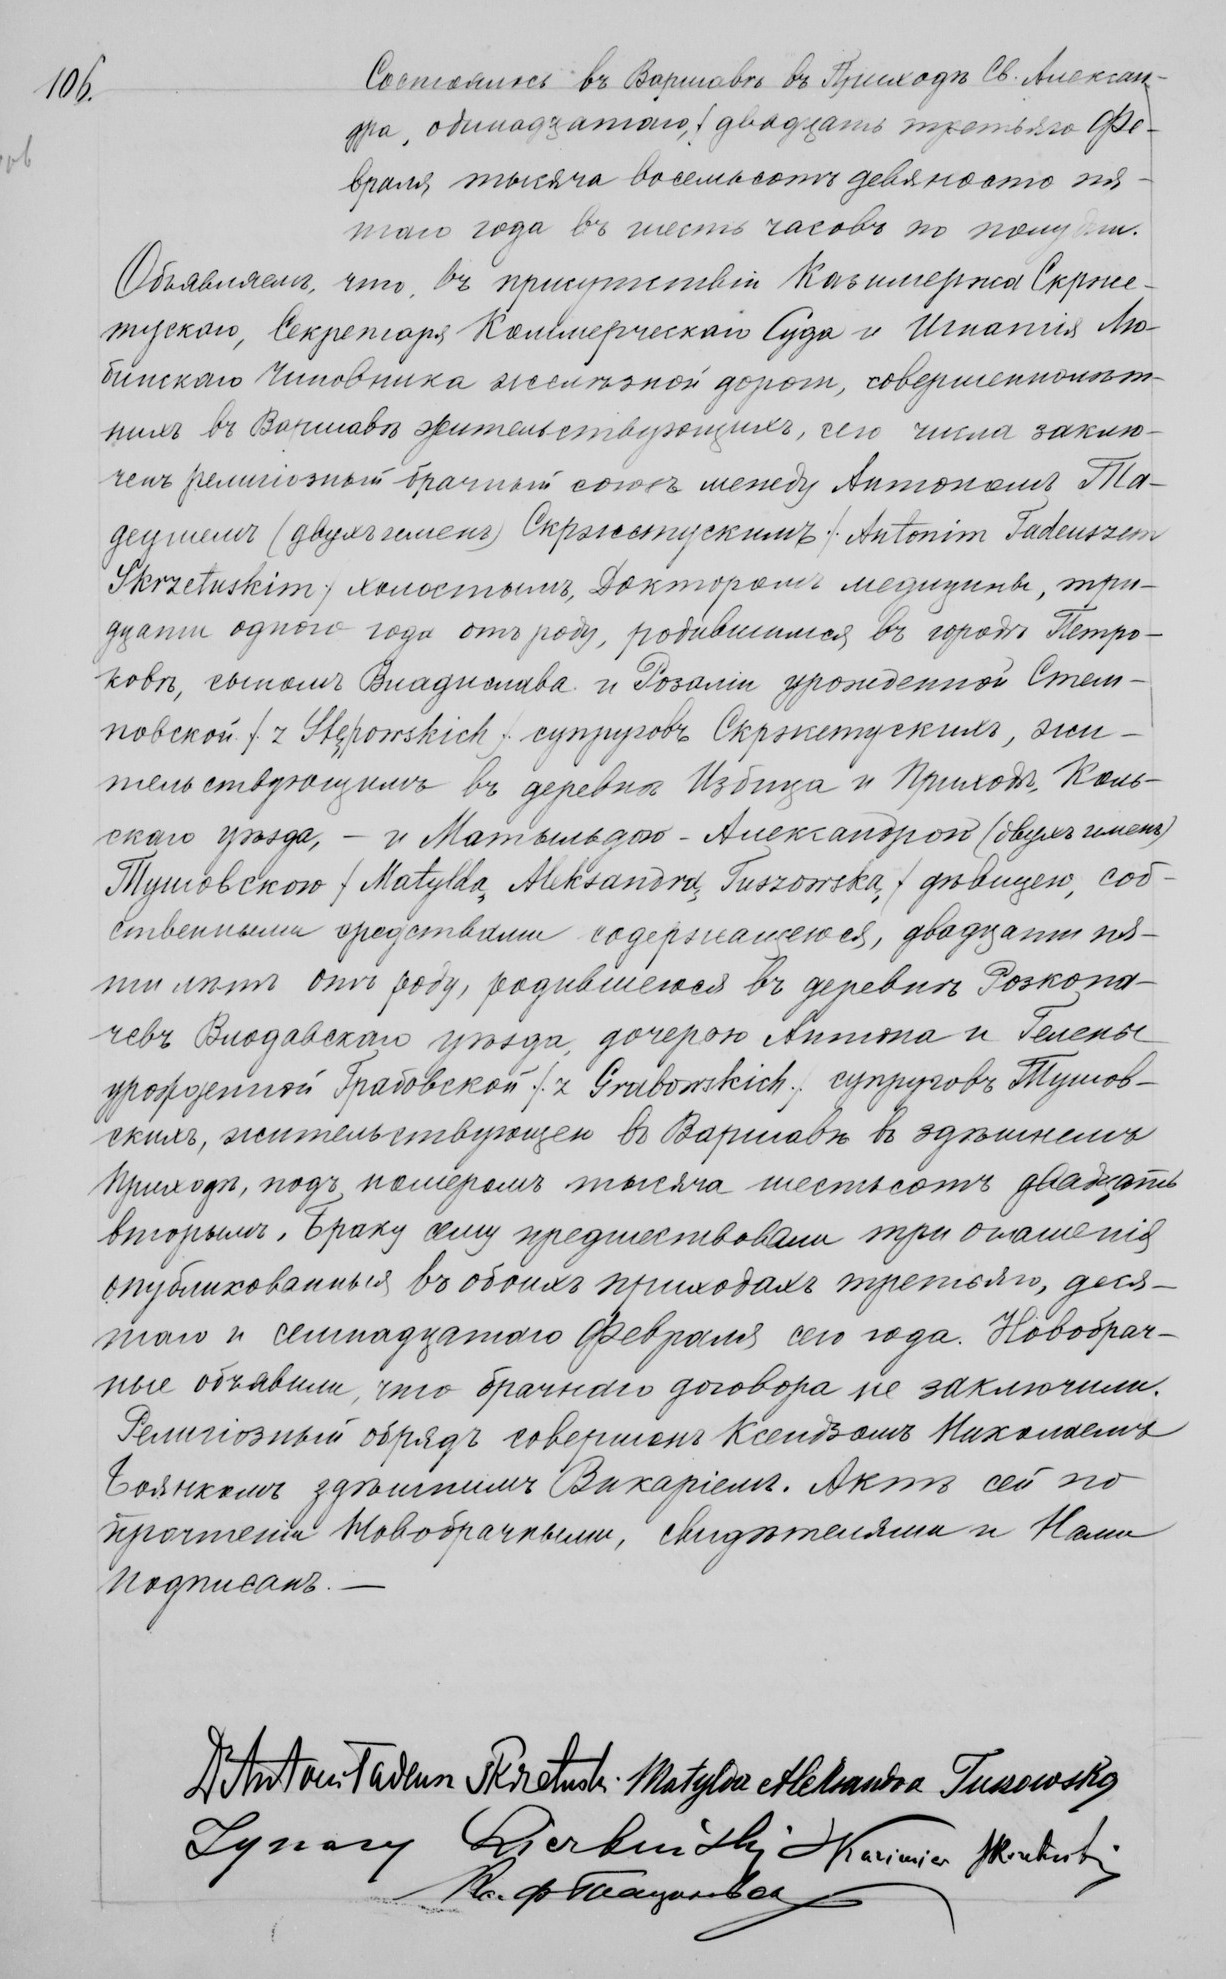 106.
Состоялось въ Варшавѣ въ Приходѣ Св. Алексан-
дра, одинадцатаго / двадцать третьяго Фе-
враля тысяча восемьсотъ девяносто пя-
таго года въ шесть часовъ по полудни.
Объявляемъ, что въ присутствіи Казимержа Скрже-
тускаго, Секретаря Коммерческаго Суда и Игнатія Лю-
бинскаго Чиновника желѣзной дороги, совершеннолѣт-
нихъ въ Варшавѣ жительствующихъ, сего числа заклю-
ченъ религіозный брачный союзъ между Антономъ Та-
деушемъ (двухъ именъ) Скржетускимъ /. Antonim Tadeuszem
Skrzetuskim / холостымъ, Докторомъ медицины, три-
дцати одного года отъ роду, родившимся въ городѣ Петро-
ковѣ, сыномъ Владислава и Розаліи урожденной Стем-
повской /. z Stępowskich /. супруговъ Скржетускихъ, жи-
тельствующимъ въ деревнѣ Избица и Приходѣ, Коль-
скаго уѣзда, – и Матыльдою - Александрою (двухъ именъ)
Тушовскою / Matyldą Aleksandrą Tuszowską / дѣвицею, соб-
ственными средствами содержащеюся, двадцати пя-
ти лѣтъ отъ роду, родившеюся въ деревнѣ Розкопа-
чевъ Влодавскаго уѣзда, дочерью Антона и Гелены
урожденной Грабовской /. z Grabowskich /. супруговъ Тушов-
скихъ, жительствующею въ Варшавѣ въ здѣшнемъ
Приходѣ, подъ номеромъ тысяча шестьсотъ двадцать
вторымъ. Браку сему предшествовали три оглашенія
опубликованныя въ обоихъ приходахъ третьяго, деся-
таго и семнадцатаго Февраля сего года. Новобрач-
ные объявили, что брачнаго договора не заключили.
Религіозный обрядъ совершонъ Ксендзомъ Николаемъ
Боянкомъ здѣшнимъ Викаріемъ. Актъ сей по
прочтеніи Новобрачными, свидѣтелями и Нами
подписанъ. —
Dr Antoni Tadeusz Skrzetuski. Matylda Aleksandra Tuszowska
Ignacy Kazimierz Skrzetuski